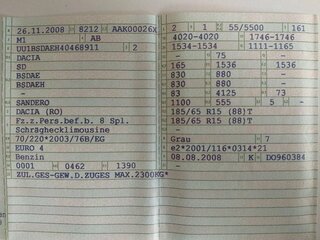 26.11.2008 8212 AAK00026X
M1 AB
UU1BSDAEH40468911 2
DACIA
SD
BSDAE
BSDAEH
–
SANDERO
DACIA (RO)
Fz.z.Pers.bef.b. 8 Spl.
Schräghecklimousine
70/220*2003/76B/EG
EURO 4
Benzin
0001 0462 1390
ZUL.GES-GEW.D.ZUGES MAX.2300KG*
2 1 55/5500 161
4020-4020 1746-1746
1534-1534 1111-1165
– 75 –
165 1536 1536
830 880 –
830 880 –
83 4125 73
1100 555 5 –
185/65 R15 (88)T
185/65 R15 (88)T
–
Grau 7
e2*2001/116*0314*21
08.08.2008 K DO960384
–